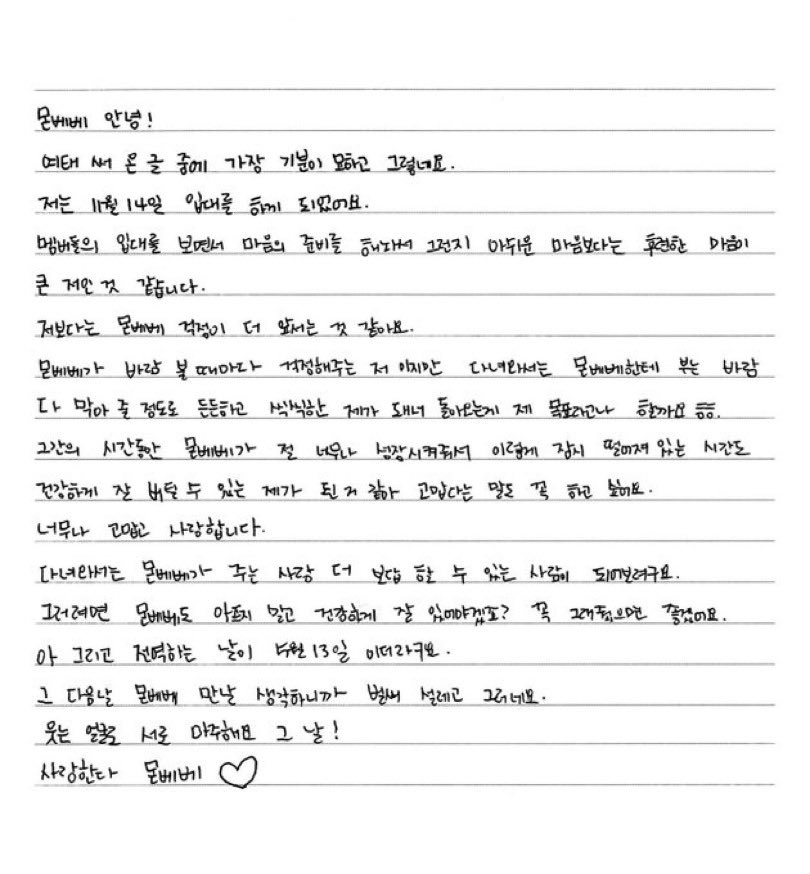 몬베베 안녕!
여태 써 온 글 중에 가장 기분이 묘하고 그렇네요.
저는 11월 14일 입대를 하게 되었어요.
멤버들의 입대를 보면서 마음의 준비를 해와서 그런지 아쉬운 마음보다는 후련한 마음이
큰 저인 것 같습니다.
저보다는 몬베베 걱정이 더 앞서는 것 같아요.
몬베베가 바람 불 때마다 걱정해주는 저 이지만 다녀와서는 몬베베한테 부는 바람
다 막아 줄 정도로 든든하고 씩씩한 제가 돼서 돌아오는게 제 목표라고나 할까요 ㅎㅎ.
그간의 시간동안 몬베베가 절 너무나 성장시켜줘서 이렇게 잠시 떨어져 있는 시간도
건강하게 잘 버틸 수 있는 제가 된 거 같아 고맙다는 말도 꼭 하고 싶어요.
너무나 고맙고 사랑합니다.
다녀와서는 몬베베가 주는 사랑 더 보답 할 수 있는 사람이 되어보려구요.
그러려면 몬베베도 아프지 말고 건강하게 잘 있어야겠죠? 꼭 그래줬으면 좋겠어요.
아 그리고 전역하는 날이 5월 13일 이더라구요.
그 다음날 몬베베 만날 생각하니까 벌써 설레고 그러네요.
웃는 얼굴로 서로 마주해요 그 날!
사랑한다 몬베베 ♡